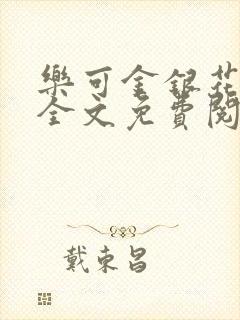 樂可金銀花
全文免費閱
戴東昌